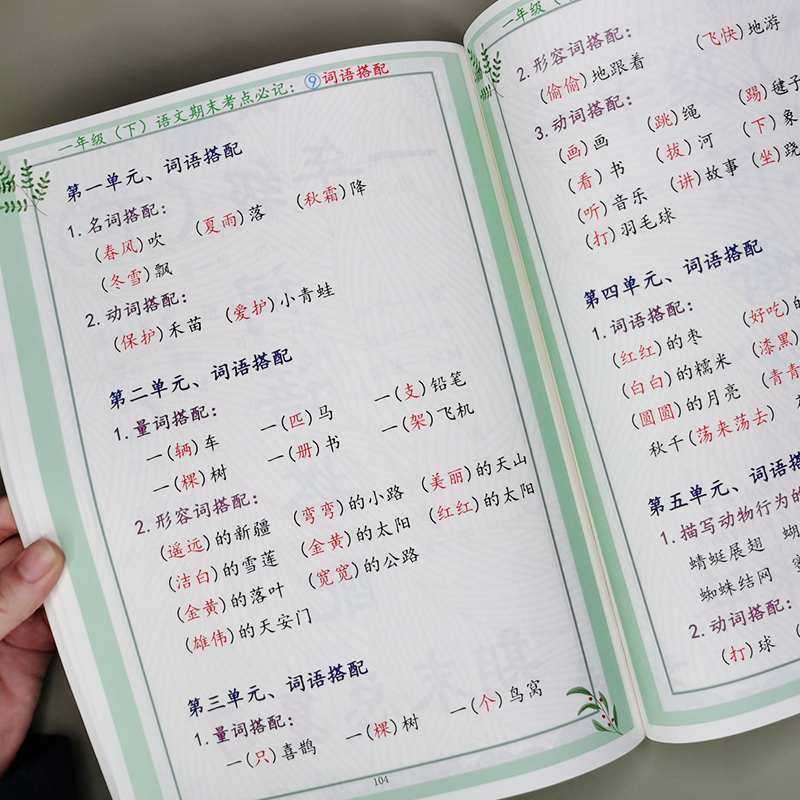 一年级（下）语文期末考点必记：⑨词语搭配
第一单元、词语搭配
1.名词搭配：
（春风）吹 （夏雨）落 （秋霜）降
（冬雪）飘
2.动词搭配：
（保护）禾苗 （爱护）小青蛙
第二单元、词语搭配
1.量词搭配：
一（辆）车 一（匹）马 一（支）铅笔
一（棵）树 一（册）书 一（架）飞机
2.形容词搭配：
（遥远）的新疆 （弯弯）的小路 （美丽）的天山
（洁白）的雪莲 （金黄）的太阳 （红红）的太阳
（金黄）的落叶 （宽宽）的公路
（雄伟）的天安门
第三单元、词语搭配
1.量词搭配：
一（只）喜鹊 一（棵）树 一（个）鸟窝
104
一年级（
2.形容词搭配：
（偷偷）地跟着 （飞快）地游
3.动词搭配：
（画）画 （跳）绳 （踢）毽子
（看）书 （拔）河 （下）象
（听）音乐 （讲）故事 （坐）跷
（打）羽毛球
第四单元、词语搭配
1.词语搭配：
（红红）的枣 （好吃）的
（白白）的糯米 （漆黑）
（圆圆）的月亮 （青青
秋千（荡来荡去）
第五单元、词语搭
1.描写动物行为的
蜻蜓展翅 蝴
蜘蛛结网
2.动词搭配：
（打）球